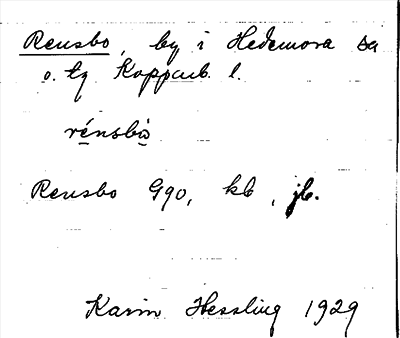 Rensbo, by i Hedemora sn
o. tg Kopparb. l.
rénsbo
Rensbo G90, kb, jb.
Karin Hessling 1929